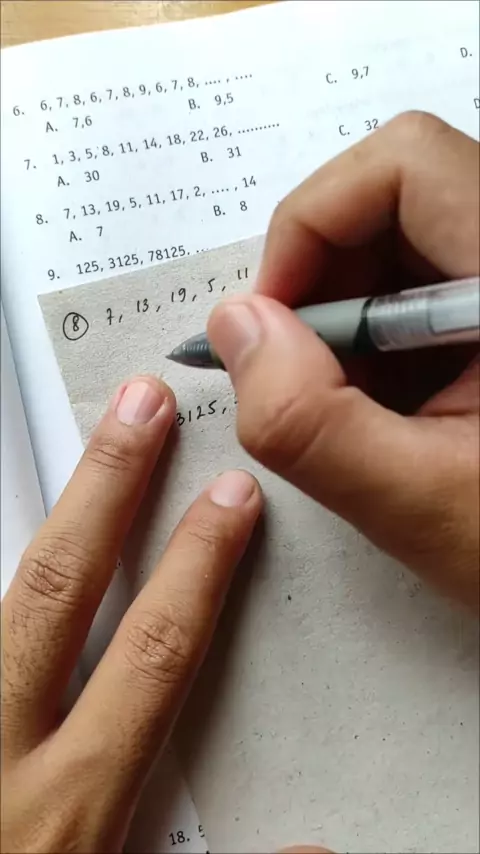 6. 6, 7, 8, 6, 7, 8, 9, 6, 7, 8, .... , ....
A. 7,6 B. 9,5 C. 9,7 D.
7. 1, 3, 5, 8, 11, 14, 18, 22, 26, ..........
A. 30 B. 31 C. 32
8. 7, 13, 19, 5, 11, 17, 2, .... , 14
A. 7 B. 8
9. 125, 3125, 78125, ..
8 7, 13, 19, 5, 11
3125,
18. 5